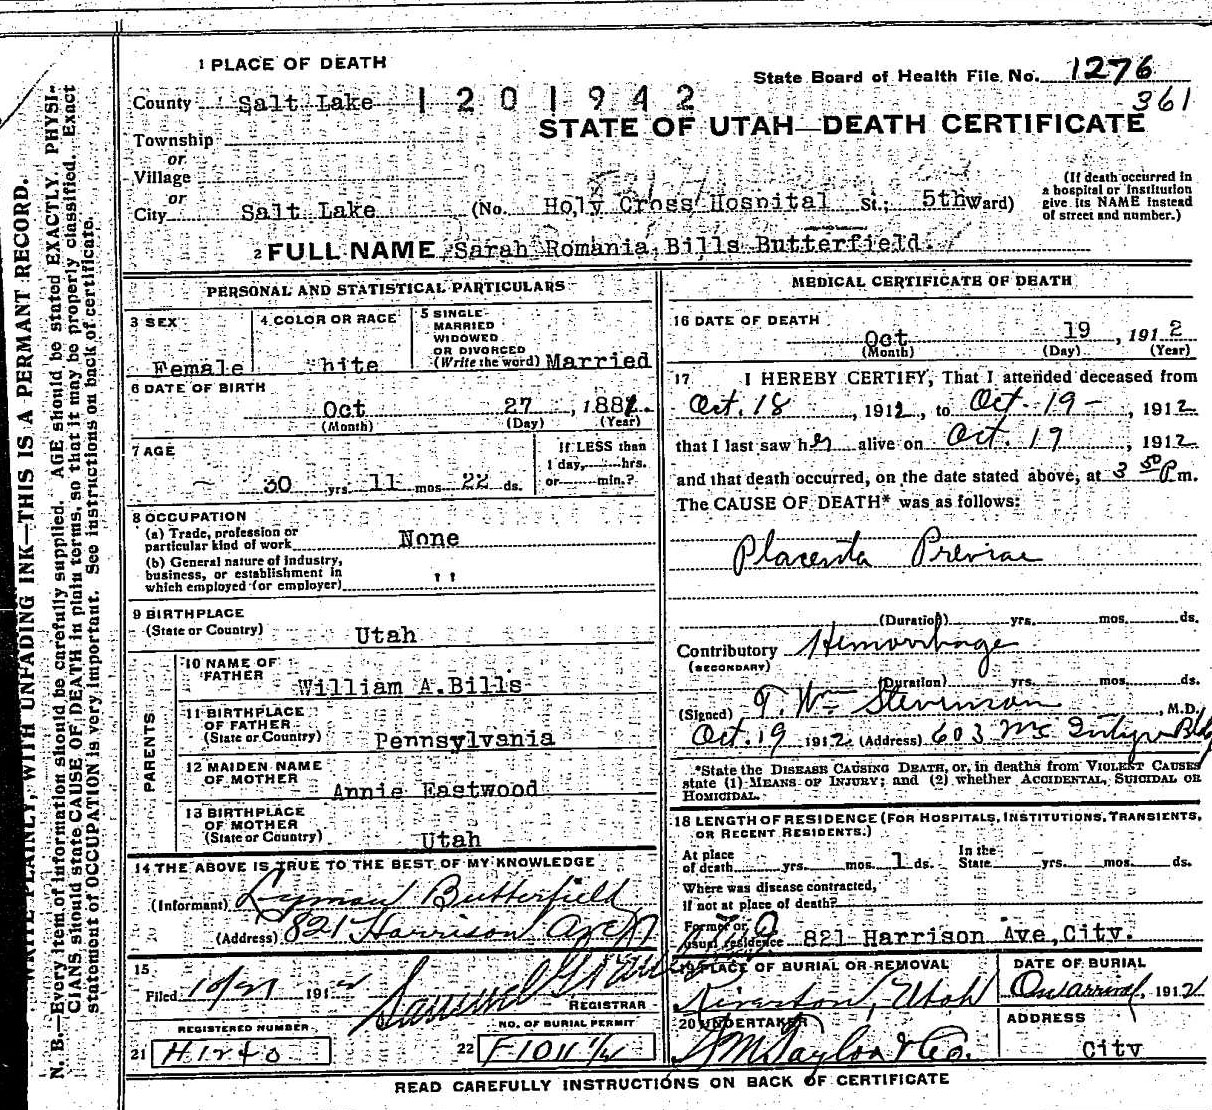 1 PLACE OF DEATH
State Board of Health File No. 1276
County Salt Lake 1 2 0 1 9 4 2
361
STATE OF UTAH—DEATH CERTIFICATE
Township
or
Village
or
City Salt Lake (No. Holy Cross Hospital St.; 5th Ward)
(If death occurred in a hospital or institution give its NAME instead of street and number.)
2 FULL NAME Sarah Romania Bills Butterfield.
PERSONAL AND STATISTICAL PARTICULARS
3 SEX Female
4 COLOR OR RACE hite
5 SINGLE MARRIED WIDOWED OR DIVORCED (Write the word) Married
6 DATE OF BIRTH
Oct 27, 1881.
(Month) (Day) (Year)
7 AGE
30 yrs. 11 mos 22 ds.
If LESS than
1 day,......hrs.
or......min.?
8 OCCUPATION
(a) Trade, profession or
particular kind of work None
(b) General nature of industry,
business, or establishment in
which employed (or employer) ''
9 BIRTHPLACE
(State or Country) Utah
PARENTS
10 NAME OF FATHER William A.Bills
11 BIRTHPLACE OF FATHER (State or Country) Pennsylvania
12 MAIDEN NAME OF MOTHER Annie Eastwood
13 BIRTHPLACE OF MOTHER (State or Country) Utah
14 THE ABOVE IS TRUE TO THE BEST OF MY KNOWLEDGE
(Informant) Lyman Butterfield
(Address) 821 Harrison Ave
15
Filed 191
REGISTRAR
REGISTERED NUMBER
21 H1240
NO. OF BURIAL PERMIT
22
MEDICAL CERTIFICATE OF DEATH
16 DATE OF DEATH
Oct 19, 1912
(Month) (Day) (Year)
17 I HEREBY CERTIFY, That I attended deceased from
Oct. 18, 1912, to Oct. 19 -, 1912
that I last saw her alive on Oct. 19, 1912
and that death occurred, on the date stated above, at 3 50 P m.
The CAUSE OF DEATH* was as follows:
Placenta Previae
(Duration) yrs. mos. ds.
Contributory Hemorrhage
(SECONDARY)
(Duration) yrs. mos. ds.
(Signed) T. Wm Stevenson, M.D.
Oct. 19 1912 (Address) 603 McIntyre Bldg
*State the DISEASE CAUSING DEATH, or, in deaths from VIOLENT CAUSES
state (1) MEANS OF INJURY; and (2) whether ACCIDENTAL, SUICIDAL OR
HOMICIDAL.
18 LENGTH OF RESIDENCE (FOR HOSPITALS, INSTITUTIONS, TRANSIENTS,
OR RECENT RESIDENTS.)
At place of death yrs. mos. 1 ds. In the State yrs. mos. ds.
Where was disease contracted,
if not at place of death?
Former or
usual residence 821 Harrison Ave,City.
19 PLACE OF BURIAL OR REMOVAL
Riverton, Utah
DATE OF BURIAL
On arrival, 1912
20 UNDERTAKER
Taylor & Co.
ADDRESS
City
READ CAREFULLY INSTRUCTIONS ON BACK OF CERTIFICATE
WRITE PLAINLY, WITH UNFADING INK—THIS IS A PERMANT RECORD.
N. B.—Every item of information should be carefully supplied. AGE should be stated EXACTLY. PHYSI-
CIANS should state CAUSE OF DEATH in plain terms, so that it may be properly classified. Exact
statement of OCCUPATION is very important. See instructions on back of certificate.